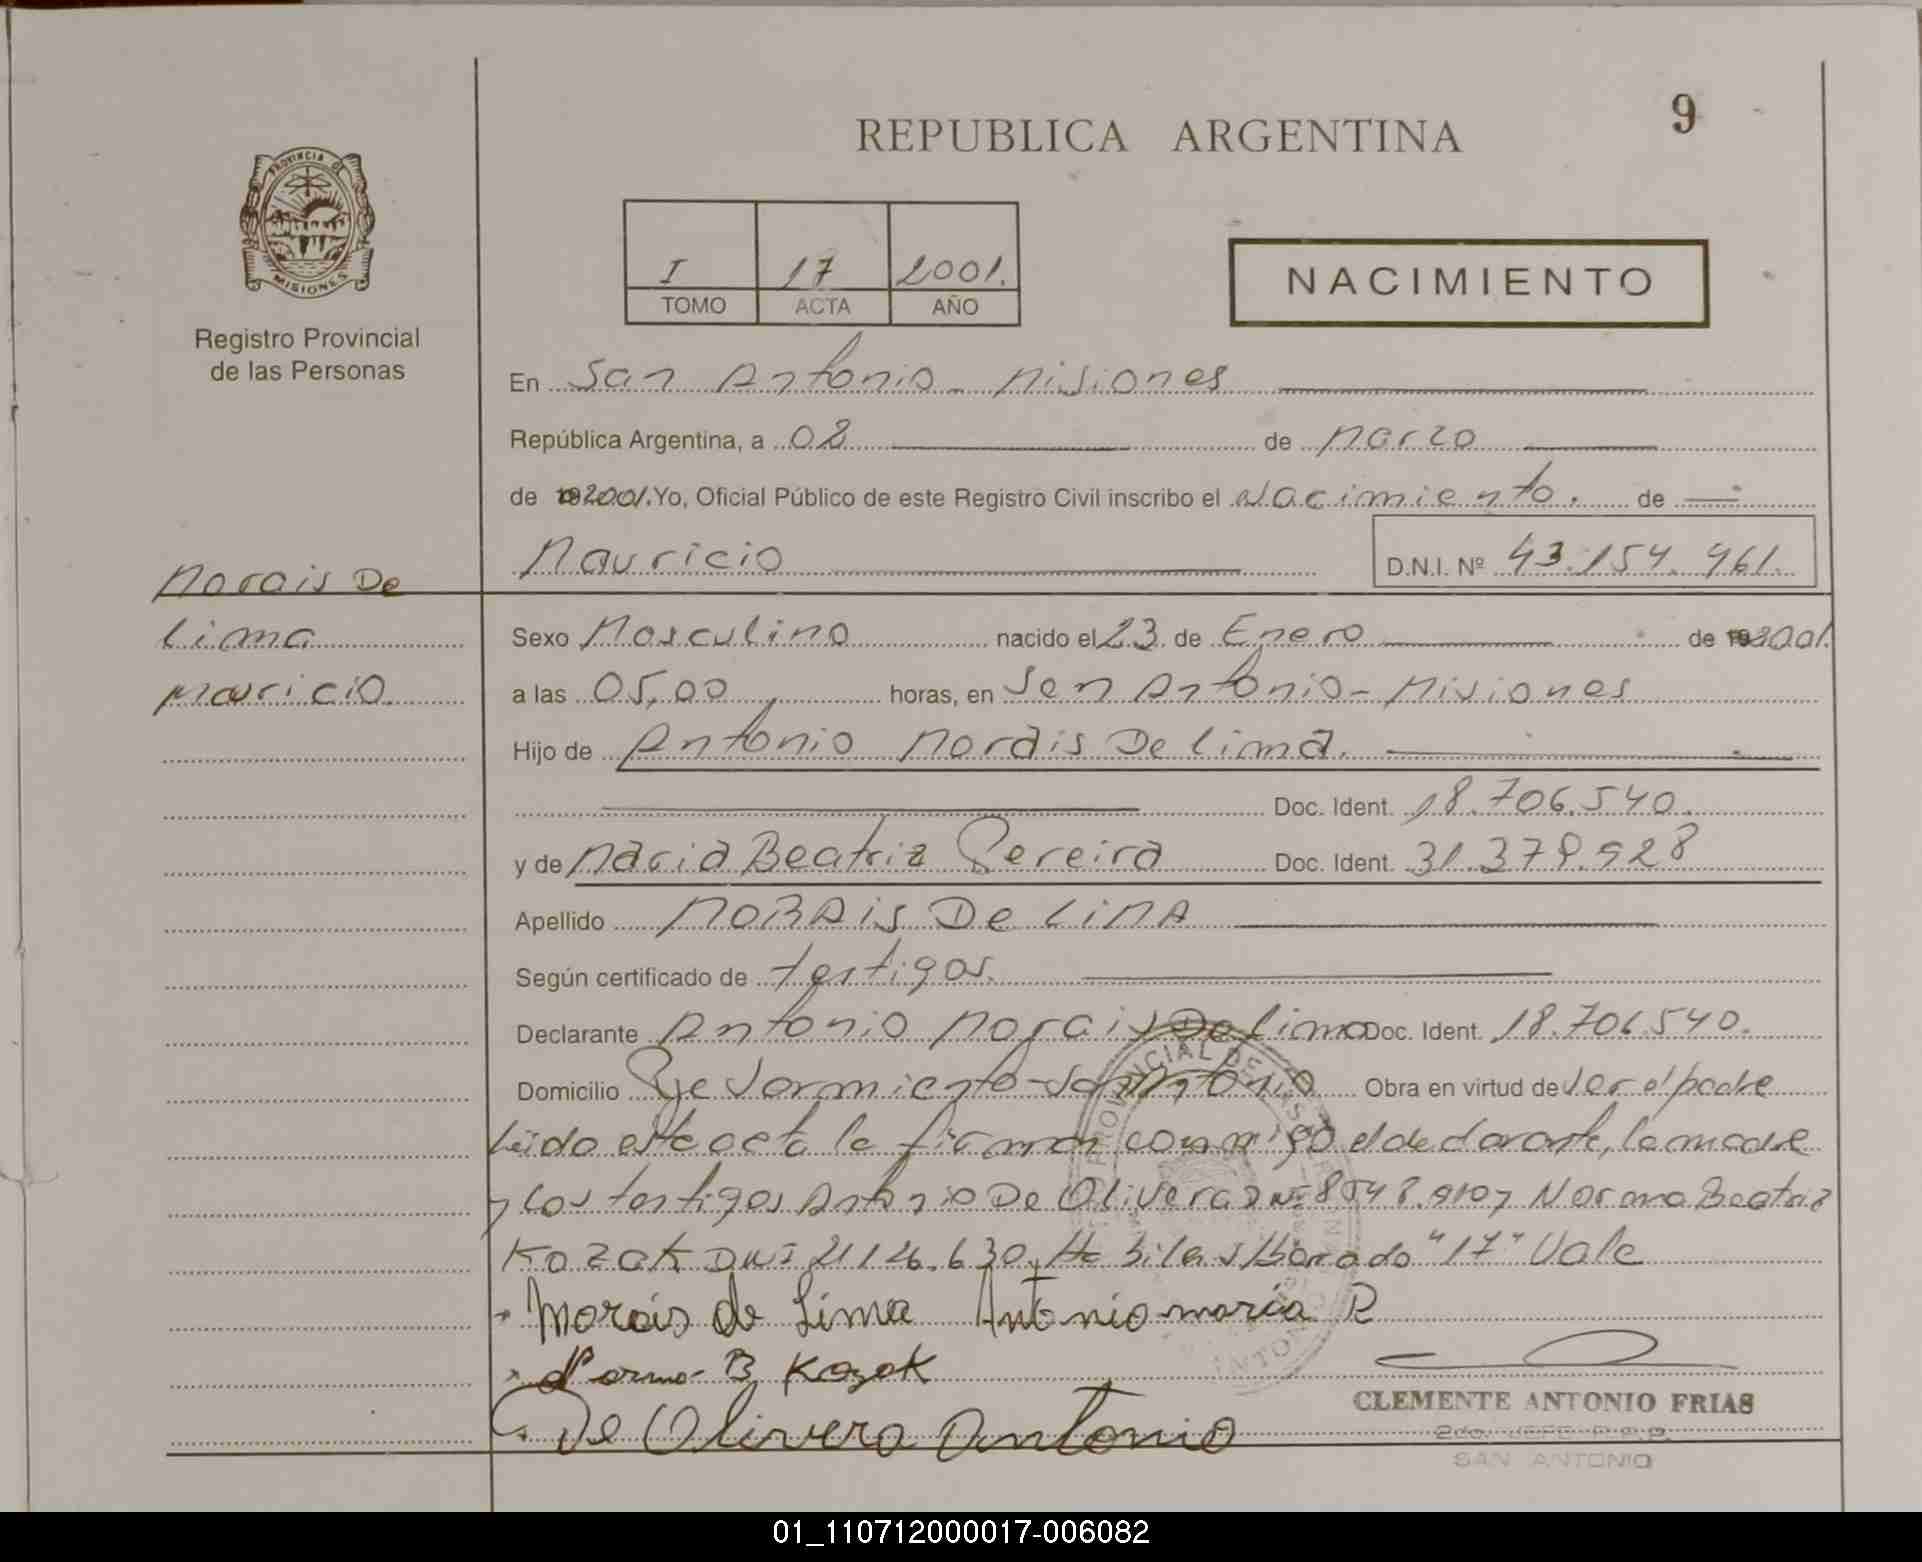 9
REPUBLICA ARGENTINA
PROVINCIA DE
MISIONES
Registro Provincial
de las Personas
I 17 2001.
TOMO ACTA AÑO
NACIMIENTO
En San Antonio - Misiones
República Argentina, a 02 de Marzo
de 2001. Yo, Oficial Público de este Registro Civil inscribo el Nacimiento. de
Mauricio D.N.I. Nº 43.154.961.
Morais De
Lima
Mauricio.
Sexo Masculino nacido el 23 de Enero de 2001.
a las 05,00 horas, en San Antonio - Misiones
Hijo de Antonio Morais De Lima.
Doc. Ident. 18.706.540.
y de Maria Beatriz Pereira Doc. Ident. 31.379.928
Apellido MORAIS De LIMA
Según certificado de testigos.
Declarante Antonio Morais De Lima Doc. Ident. 18.706.540.
Domicilio San Antonio Obra en virtud de ser el padre
Leido este acta la firman conmigo el declarante, la madre
y los testigos Antonio De Olivera DNI Norma Beatriz
Kozak DNI 21126.630. borrado "17" Vale
Morais de Lima Antonio maria P
Norma B Kozak
De Olivera Antonio
CLEMENTE ANTONIO FRIAS
2do. JEFE R.P.P.
SAN ANTONIO
01_110712000017-006082